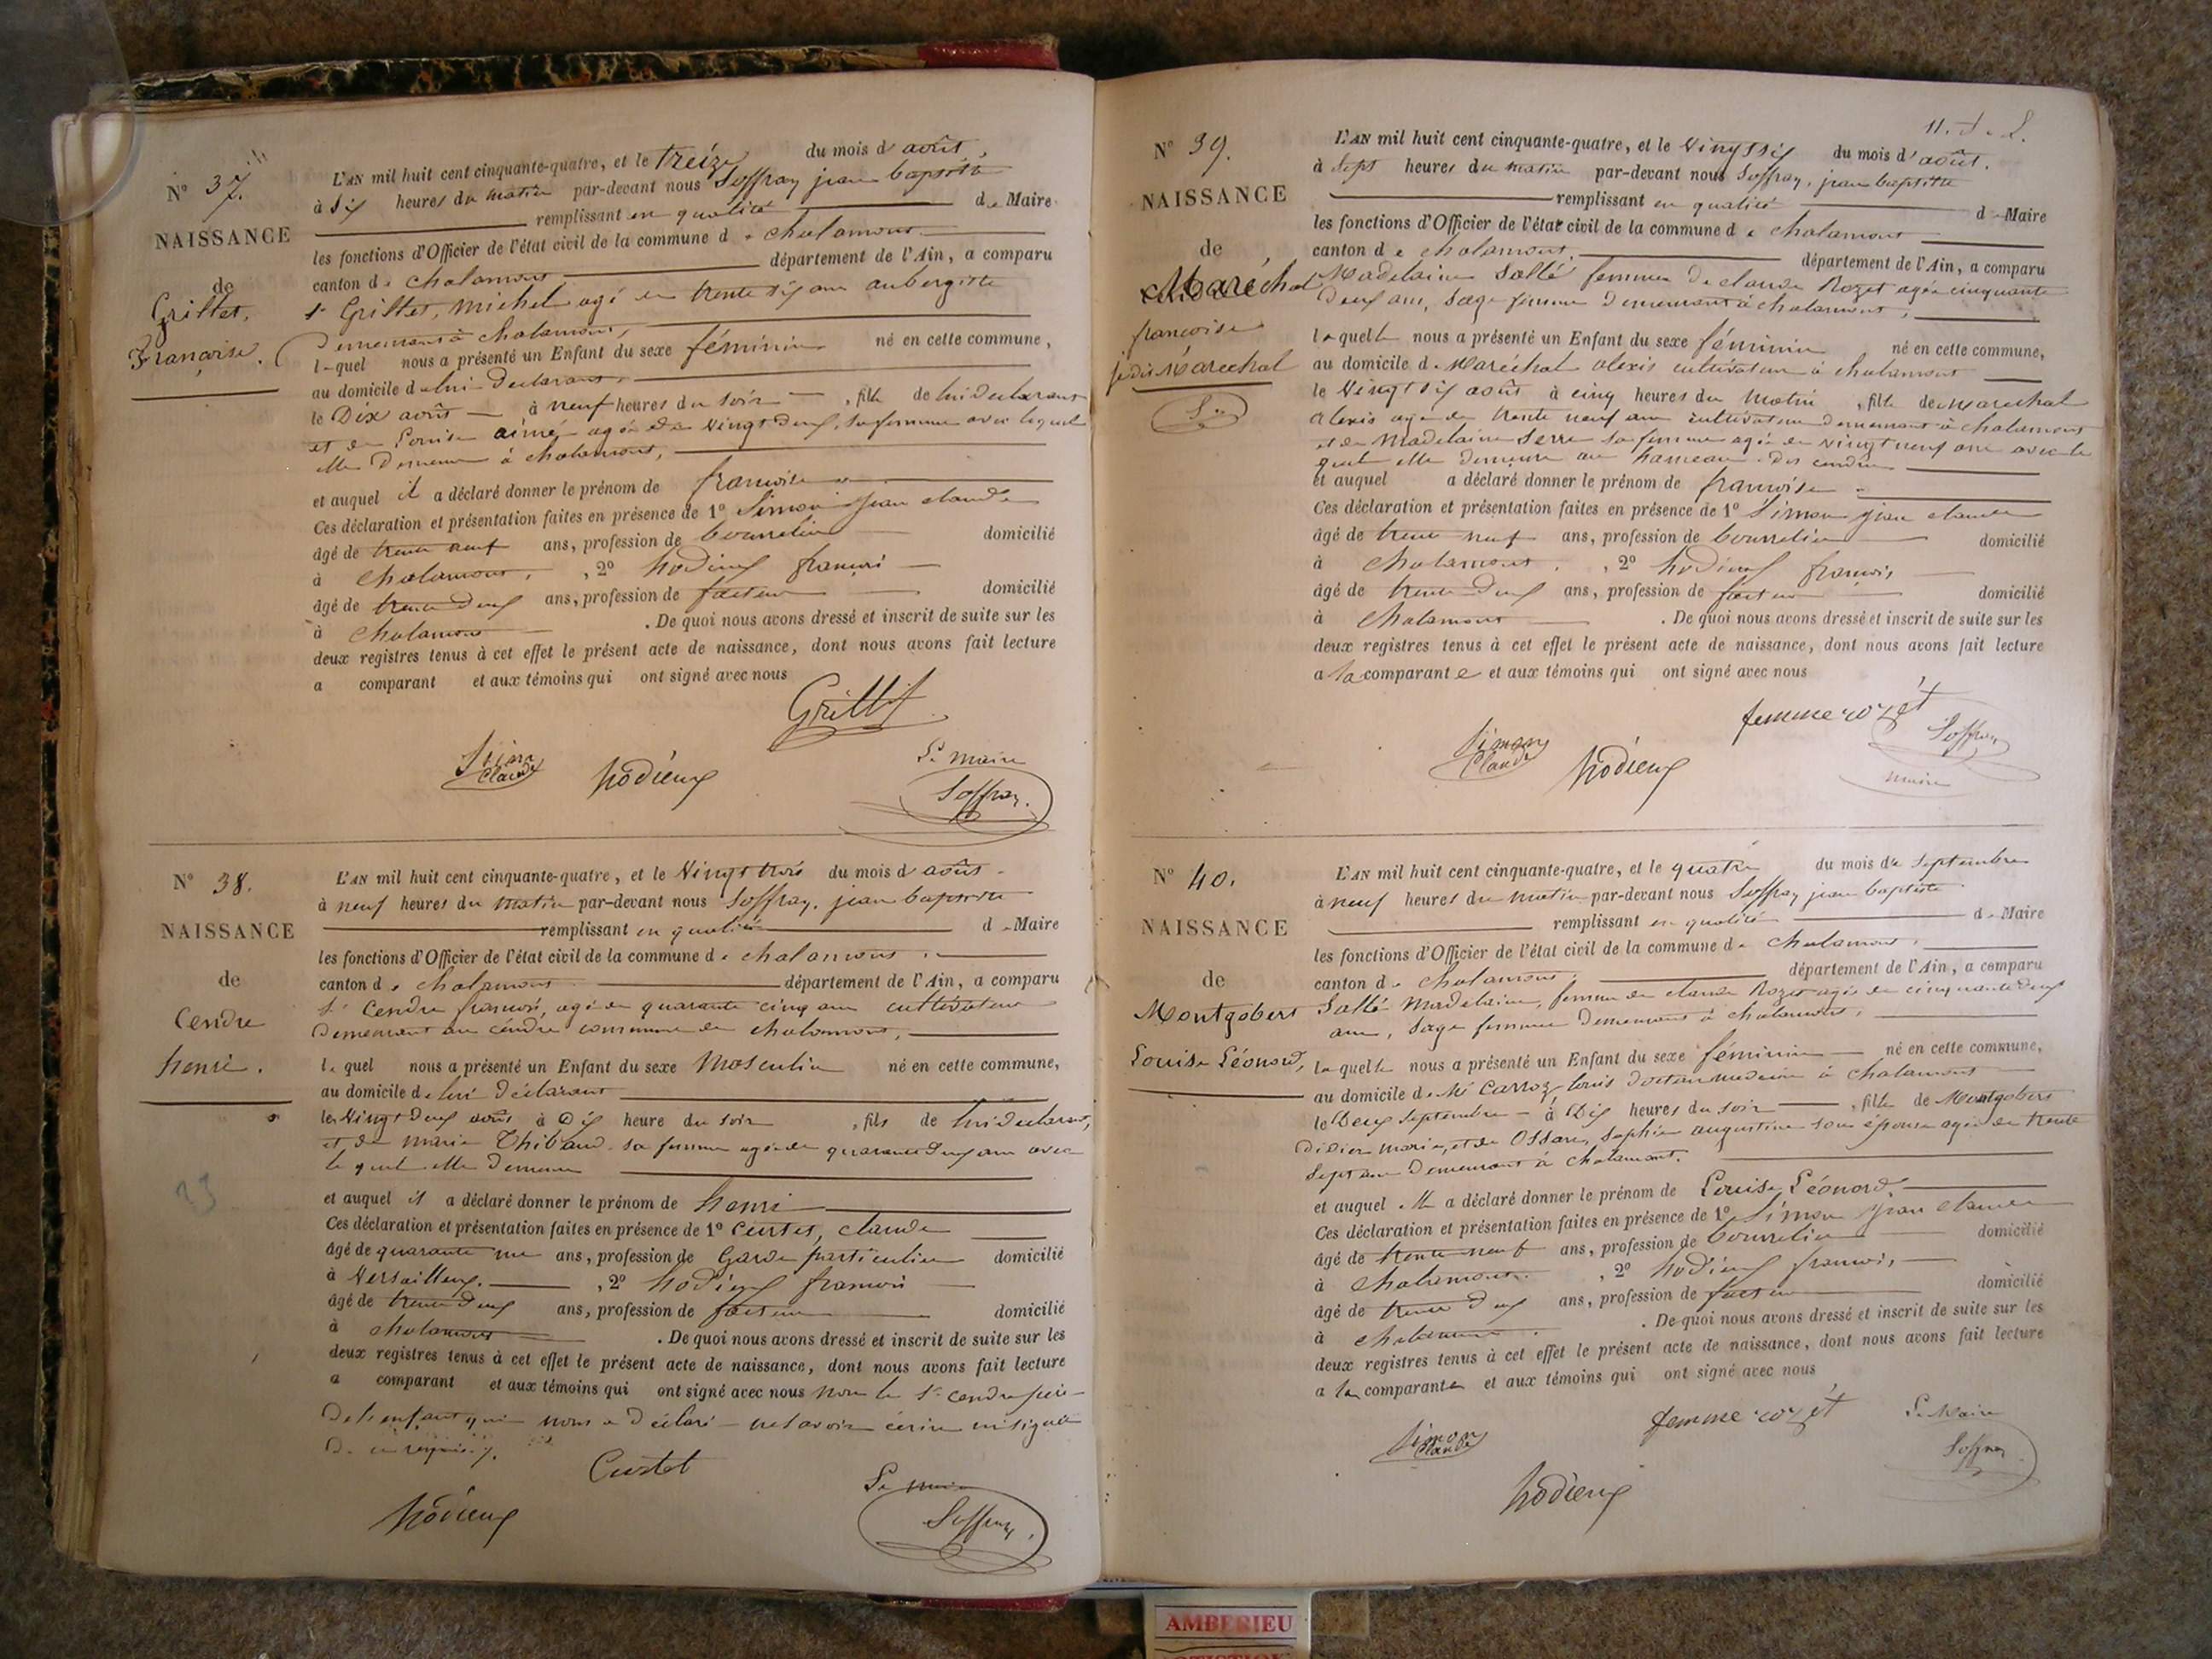 N° 37.
NAISSANCE
de
Grillet,
Françoise.
L'AN mil huit cent cinquante-quatre, et le treize du mois d'août,
à six heures du matin par-devant nous Soffray jean baptiste
remplissant en qualité de Maire
les fonctions d'Officier de l'état civil de la commune de chalamont
canton de chalamont département de l'Ain, a comparu
sr Grillet, michel agé de trente six ans aubergiste
Demeurant à chalamont,
lequel nous a présenté un Enfant du sexe féminin né en cette commune,
au domicile de lui déclarant,
le Dix août à neuf heures du soir, fille de lui déclarant
et de Louise aimé agée de vingt deux, sa femme avec lequel
elle Demeure à chalamont,
et auquel il a déclaré donner le prénom de françoise
Ces déclaration et présentation faites en présence de 1° Simon jean claude
âgé de trente neuf ans, profession de bourrelier domicilié
à chalamont, 2° hodieux françois
âgé de trente deux ans, profession de facteur domicilié
à chalamont. De quoi nous avons dressé et inscrit de suite sur les
deux registres tenus à cet effet le présent acte de naissance, dont nous avons fait lecture
a comparant et aux témoins qui ont signé avec nous
Grillet
Simon
Claude
hodieux
Le maire
Soffray
N° 38.
NAISSANCE
de
Cendre
henri.
L'AN mil huit cent cinquante-quatre, et le Vingt trois du mois d'août
à neuf heures du matin par-devant nous Soffray, jean baptiste
remplissant en qualité de Maire
les fonctions d'Officier de l'état civil de la commune de chalamont
canton de chalamont département de l'Ain, a comparu
sr Cendre françois, agé de quarante cinq ans cultivateur
Demeurant au cendre commune de chalamont,
lequel nous a présenté un Enfant du sexe Masculin né en cette commune,
au domicile de lui déclarant
le Vingt Deux août à Dix heure du soir, fils de lui déclarant,
et de marie Thibaud sa femme agée de quarante deux ans avec
lequel elle Demeure
et auquel il a déclaré donner le prénom de henri
Ces déclaration et présentation faites en présence de 1° Curtet, claude
âgé de quarante un ans, profession de Garde particulier domicilié
à Versailleux, 2° hodieux françois
âgé de trente deux ans, profession de facteur domicilié
à chalamont. De quoi nous avons dressé et inscrit de suite sur les
deux registres tenus à cet effet le présent acte de naissance, dont nous avons fait lecture
a comparant et aux témoins qui ont signé avec nous non le sr cendre père
De l'enfant qui nous a Déclaré ne savoir écrire ni signer
De ce requis.
Curtet
hodieux
Le maire
Soffray
23
N° 39.
NAISSANCE
de
Maréchal
françoise
je dis Maréchal
L'AN mil huit cent cinquante-quatre, et le Vingt six du mois d'août.
à sept heures du matin par-devant nous Soffray, jean baptiste
remplissant en qualité de Maire
les fonctions d'Officier de l'état civil de la commune de chalamont
canton de chalamont. département de l'Ain, a comparu
Madelaine Sallé femme De claude Rozet agée cinquante
Deux ans, Sage femme Demeurant à chalamont,
laquelle nous a présenté un Enfant du sexe féminin né en cette commune,
au domicile de Maréchal alexis cultivateur à chalamont
le Vingt six août à cinq heures du matin, fille de Marechal
alexis agé de trente neuf ans cultivateur demeurant à chalamont
et de Madelaine Serre sa femme agée de vingt neuf ans avec le
quel elle Demeure au hameau des cendres
et auquel a déclaré donner le prénom de françoise
Ces déclaration et présentation faites en présence de 1° Simon jean claude
âgé de trente neuf ans, profession de bourrelier domicilié
à chalamont, 2° hodieux françois
âgé de trente deux ans, profession de facteur domicilié
à chalamont. De quoi nous avons dressé et inscrit de suite sur les
deux registres tenus à cet effet le présent acte de naissance, dont nous avons fait lecture
a la comparante et aux témoins qui ont signé avec nous
femme rozét
Simon
Claude
hodieux
Soffray
maire
N° 40.
NAISSANCE
de
Montgobert
Louise Léonord,
L'AN mil huit cent cinquante-quatre, et le quatre du mois de septembre
à neuf heures du matin par-devant nous Soffray jean baptiste
remplissant en qualité de Maire
les fonctions d'Officier de l'état civil de la commune de chalamont
canton de chalamont. département de l'Ain, a comparu
Sallé Madelaine, femme de claude Rozet agée de cinquante deux
ans, sage femme Demeurant à chalamont,
laquelle nous a présenté un Enfant du sexe féminin né en cette commune,
au domicile de Mr Carroz louis docteur medecin à chalamont
le Deux septembre à Dix heures du soir, fille de Montgobert
Didier marie, et de Ossare, sophie augustine son épouse agée de trente
sept ans Demeurant à chalamont.
et auquel elle a déclaré donner le prénom de Louise Léonord.
Ces déclaration et présentation faites en présence de 1° Simon jean claude
âgé de trente neuf ans, profession de bourrelier domicilié
à chalamont. 2° hodieux françois,
âgé de trente deux ans, profession de facteur domicilié
à chalamont. De quoi nous avons dressé et inscrit de suite sur les
deux registres tenus à cet effet le présent acte de naissance, dont nous avons fait lecture
a la comparante et aux témoins qui ont signé avec nous
femme rozét
Simon
Claude
Le Maire
Soffray
hodieux
AMBERIEU